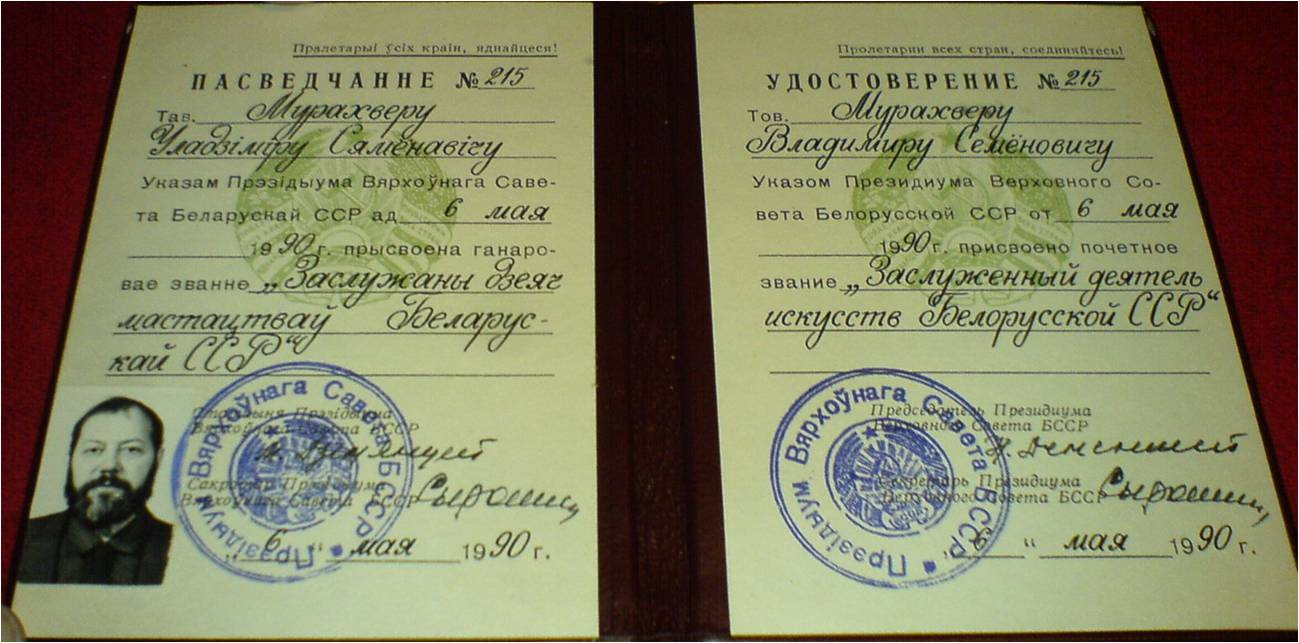 Пралетарыі ўсіх краін, яднайцеся!
ПАСВЕДЧАННЕ № 215
Тав. Мурахверу
Уладзіміру Сямёнавічу
Указам Прэзідыума Вярхоўнага Саве-
та Беларускай ССР ад 6 мая
1990 г. прысвоена ганаро-
вае званне „Заслужаны дзеяч
мастацтваў Беларус-
кай ССР"
Старшыня Прэзідыума
Вярхоўнага Савета БССР
Сакратар Прэзідыума
Вярхоўнага Савета БССР
„6" мая 1990 г.
Прэзідыум Вярхоўнага Савета БССР
Пролетарии всех стран, соединяйтесь!
УДОСТОВЕРЕНИЕ № 215
Тов. Мурахверу
Владимиру Семёновичу
Указом Президиума Верховного Со-
вета Белорусской ССР от 6 мая
1990 г. присвоено почетное
звание „Заслуженный деятель
искусств Белорусской ССР"
Председатель Президиума
Верховного Совета БССР
Секретарь Президиума
Верховного Совета БССР
„6" мая 1990 г.
Прэзідыум Вярхоўнага Савета БССР